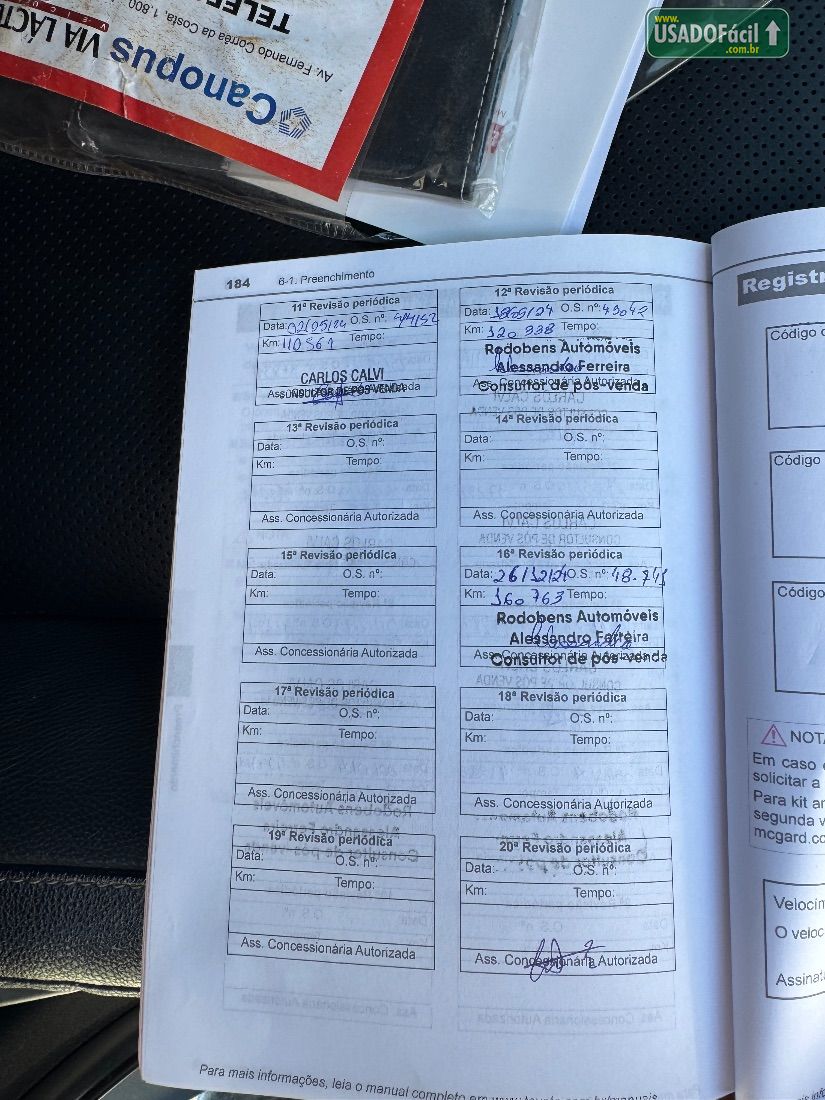 www.
USADOFácil
.com.br
TELEF
Av. Fernando Corrêa da Costa, 1.800
Canopus VIA LÁCTE
184 6-1. Preenchimento
11ª Revisão periódica
Data: 02/05/24 O.S. nº: 44152
Km: 110561 Tempo:
CARLOS CALVI
CONSULTOR DE PÓS VENDA
12ª Revisão periódica
O.S. nº: 43042
Km: 120 938 Tempo:
Rodobens Automóveis
Alessandro Ferreira
Consultor de pós-venda
13ª Revisão periódica
Data: O.S. nº:
Km: Tempo:
Ass. Concessionária Autorizada
14ª Revisão periódica
Data: O.S. nº:
Km: Tempo:
Ass. Concessionária Autorizada
15ª Revisão periódica
Data: O.S. nº:
Km: Tempo:
Ass. Concessionária Autorizada
16ª Revisão periódica
Data: 26/12/24 O.S. nº: 48.741
Km: 160 763 Tempo:
Rodobens Automóveis
Alessandro Ferreira
Consultor de pós-venda
17ª Revisão periódica
Data: O.S. nº:
Km: Tempo:
Ass. Concessionária Autorizada
18ª Revisão periódica
Data: O.S. nº:
Km: Tempo:
Ass. Concessionária Autorizada
19ª Revisão periódica
Data: O.S. nº:
Km: Tempo:
Ass. Concessionária Autorizada
20ª Revisão periódica
Data: O.S. nº:
Km: Tempo:
Ass. Concessionária Autorizada
Para mais informações, leia o manual completo em
Registr
Código
Código
Código
NOTA
Em caso
solicitar a
Para kit an
segunda v
mcgard.co
Velocím
O veloc
Assinat